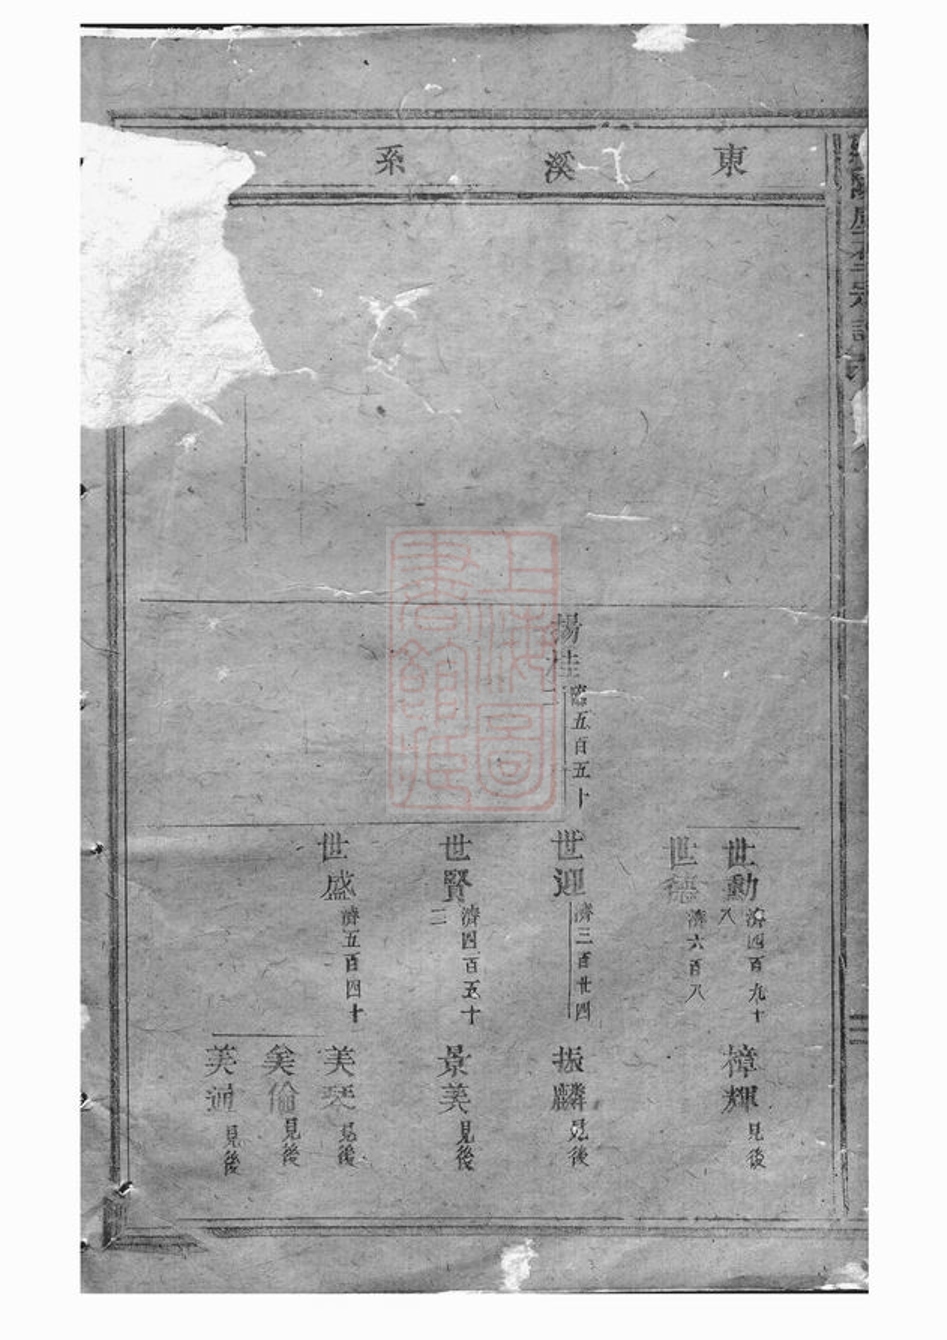 東溪系
楊桂
臨五百五十
二
世勳
濟四百九十
八
世德
濟六百八
世迎
濟三百廿四
世賢
濟四百五十
三
世盛
濟五百四十
樟輝見後
振麟見後
景美見後
美琴見後
美倫見後
美通見後
上海圖
書館藏